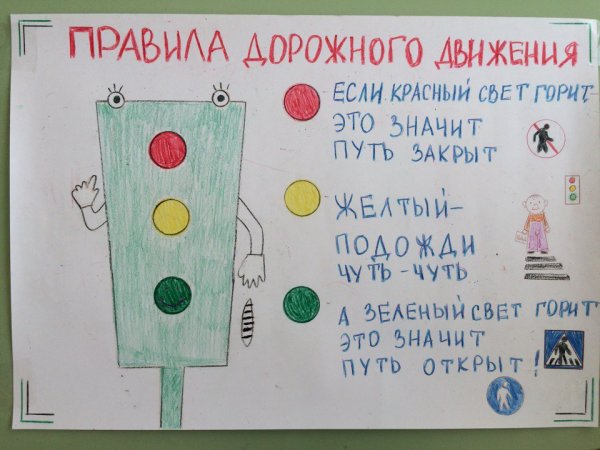 ПРАВИЛА ДОРОЖНОГО ДВИЖЕНИЯ
ЕСЛИ КРАСНЫЙ СВЕТ ГОРИТ-
ЭТО ЗНАЧИТ
ПУТЬ ЗАКРЫТ
ЖЕЛТЫЙ-
ПОДОЖДИ
ЧУТЬ-ЧУТЬ
А ЗЕЛЕНЫЙ СВЕТ ГОРИТ
ЭТО ЗНАЧИТ
ПУТЬ ОТКРЫТ!